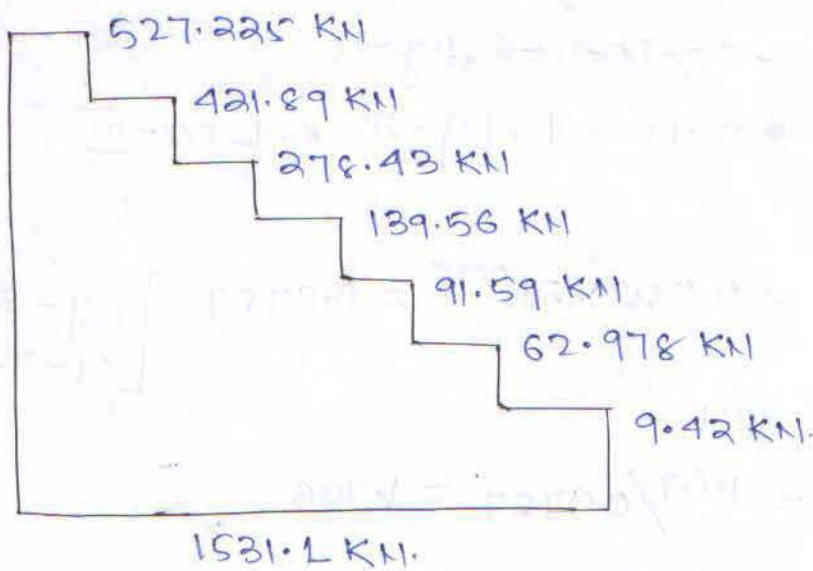 527.225 KN
421.89 KN
278.43 KN
139.56 KN
91.59 KN
62.978 KN
9.42 KN.
1531.1 KN.